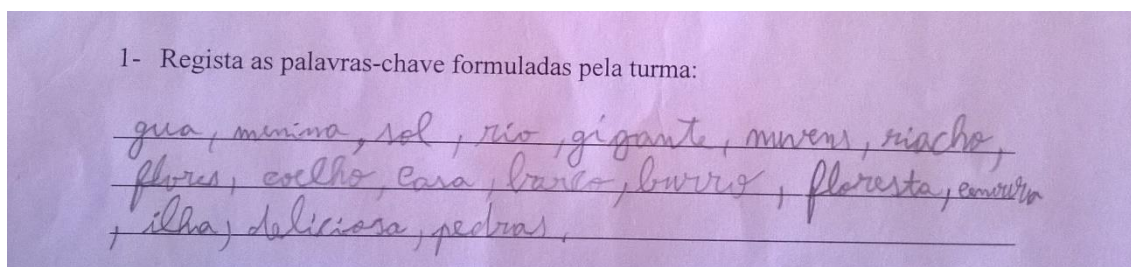 1- Regista as palavras-chave formuladas pela turma:
gua, menina, sol, rio, gigante, nuvens, riacho,
flores, coelho, casa, barco, burro, floresta, cenoura
, ilha, deliciosa, pedras.